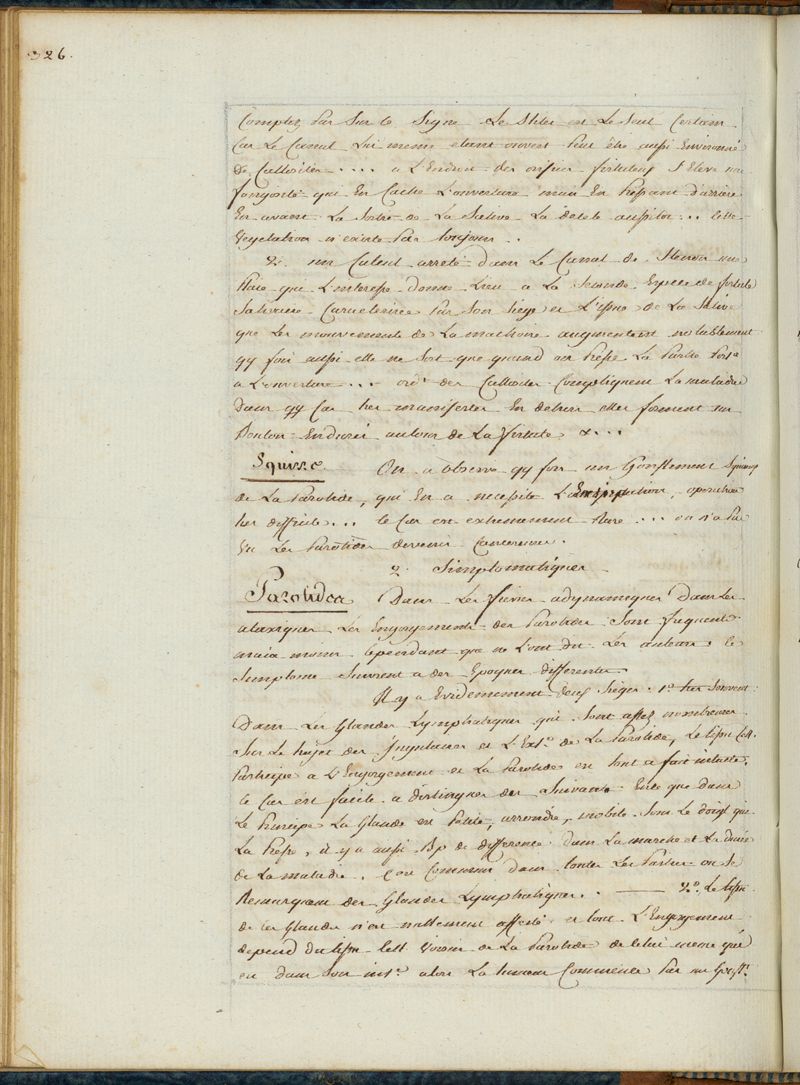 326.
Comptez par sur ce signe. Le stilet est le seul Certain
Car le Canal lui meme etant ouvert peut être aussi Environné
de Callosités .... a L'Endroit des orifices fistuleux S'Eleve une
fongosité qui En Cache L'ouverture mais En pressant d'arriere
En avant La Sortie de La Salive La decele aussitot ... cette
Vegetation n'existe pas toujours.
2. un Calcul arreté dans Le Canal de Stenon une
Plaie qui L'interesse donne Lieu a La Seconde Espece de fistule
Salivaire Caracterisée par Son Siege et L'issue de La Salive
que Les mouvements de La machoire augmentent notablement
qq fois aussi elle ne Sort que quand on presse La partie
a L'ouverture ... ord.t des Callosités Compliquent La maladie
Dans qq Cas tres manifestes En dehors elles forment un
Bouton Endurci autour de La fistule &...
Squirre. On a observé qq fois un Gonflement
de La Parotide, qui En a necessité L'Extirpation, operation
tres difficile ... le Cas est extremement Rare ... on n'a pas
Vu Les Parotides devenir Cancereuses.
2. Simptomatiques
Parotides Dans Les fievres adynamiques Dans Les
ataxiques Les Engorgements des Parotides Sont frequents
mais moins Cependant que ne L'ont dit Les auteurs. Ce
Simptome Survient a des Epoques differentes
Il y a Evidemment deux Sieges. 1.o tres Souvent
Dans Les Glandes Lymphatiques qui Sont assez nombreuses
Sur Le trajet des Jugulaires et L'Ext.r de La Parotide, Le tissu Cell.
Participe a L'Engorgement et La Parotide est tout a fait intacte.
Ce Cas est facile a distinguer du Suivant En ce que dans
Le Principe La Glande est Petite, arrondie, mobile Sous Le doigt qui
La Presse, il y a aussi Bp de difference dans La marche et La durée
de La maladie. Ceci Commun dans toutes Les Parties ou Se
Remarquent des Glandes Lymphatiques. — 2.o Le tissu
de Ces Glandes n'est nullement affecté et tout L'Engorgement
depend du tissu Cell. Voisin de La Parotide de Celui meme qui
est dans Son int.r alors La tumeur Commence Par un Gonfl.t